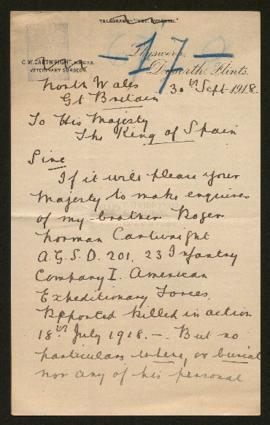 -17-
C. W. CARTWRIGHT, M.R.C.V.S.
VETERINARY SURGEON.
Dyserth, Flints.
North Wales 30th Sept. 1918.
Gt Britain
To His Majesty
The King of Spain
Sire
If it will please your
Majesty to make enquires
of my brother Roger
Norman Cartwright
A.G.S.D. 201. 23 Infantry
Company I. American
Expeditionary Forces.
Reported killed in action
18th July 1918. — But no
particulars where, or burial
nor any of his personal